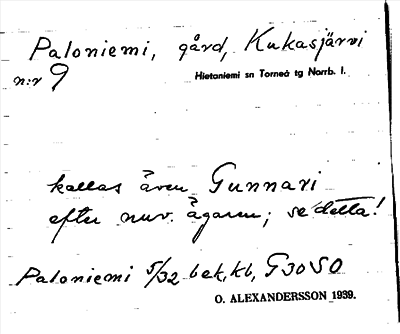 Paloniemi, gård, Kukasjärvi
n:r 9
Hietaniemi sn Torneå tg Norrb. l.
kallas även Gunnari
efter nuv. ägaren; se detta!
Paloniemi 5/32 bek, kb, G30SO
O. ALEXANDERSSON 1939.